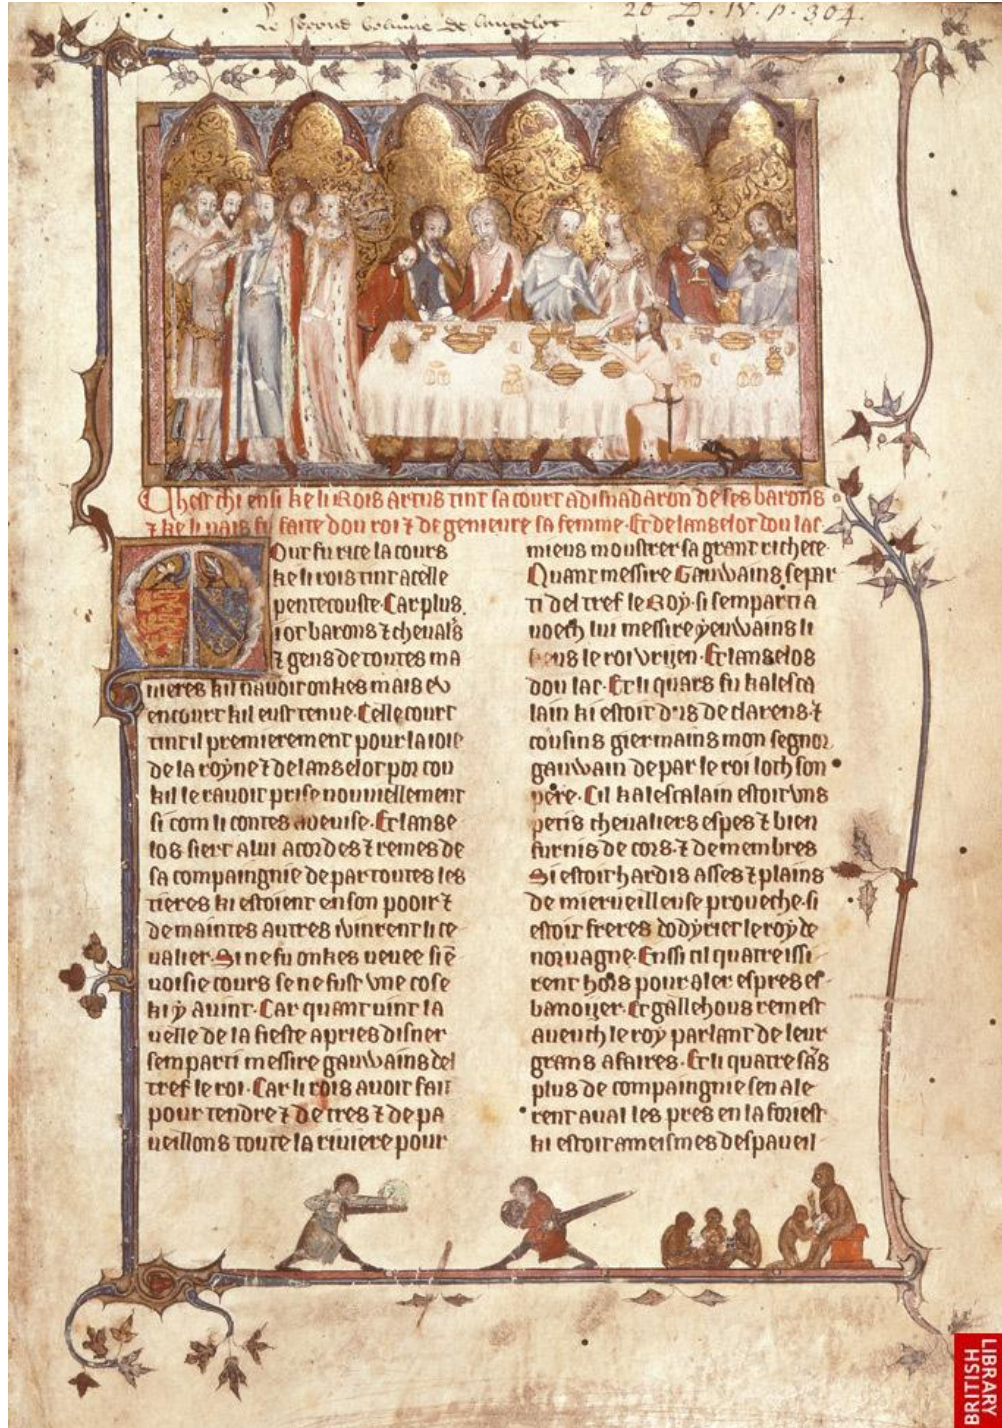 Le second volume de lancelot
20 D. IV. p. 304.
Chest chi ensi ke li Rois artus tint sa court a disnadaron de ses barons
⁊ ke li pais fu faite dou roi ⁊ de genieure sa femme. Et de lanselot dou lac.
Mout fu rice la cours
ke li rois tint a celle
pentecouste. Car plus
i ot barons ⁊ cheualrs
⁊ gens de toutes ma
nieres kil nauoit onkes mais eu
en court kil eust tenue. Celle court
tint il premierement pour la ioie
de la royne ⁊ de lanselot por cou
kil le rauoit prise nouuiellement
si com li contes deuise. Et lanse
los siert a lui acordes ⁊ remes de
sa compaingnie de par toutes les
tieres ki estoient en son pooir ⁊
de maintes autres i vinrent li ce
ualier. Si ne fu onkes veuee si en
uoisie cours se ne fust vne cose
ki y auint. Car quant uint la
uelle de la fieste apries disner
sen parti messire gauwains del
tref le roi. Car li rois auoit fait
pour tendre ⁊ de tres ⁊ de pa
ueillons toute la riuiere pour
miens moustrer sa grant richece.
Quant messire Gauwains se par
ti del tref le Roy. si sen parti a
uoech lui messire yeuwains li
fiens le roi vrijen. Et lanselos
dou lac. Et li quars fu kalesca
lain ki estoit dus de clarens. ⁊
cousins giermains mon segnor
gauwain de par le roi loth son
pere. Cil kalescalain estoit vns
petis cheualiers espes ⁊ bien
furnis de cors. ⁊ de membres
Si estoit hardis asses ⁊ plains
de mierueilleuse proueche. si
estoit freres dodyrier le roy de
noruagne. Ensi cil quatre issi
rent hors pour aler es pres es
banoyer. Et gallehous remest
auoech le roy parlant de leur
grans afaires. Et li quatre sans
plus de compaingnie sen ale
rent aual les pres en la foriest
ki estoit ameismes des paueil-
BRITISH
LIBRARY